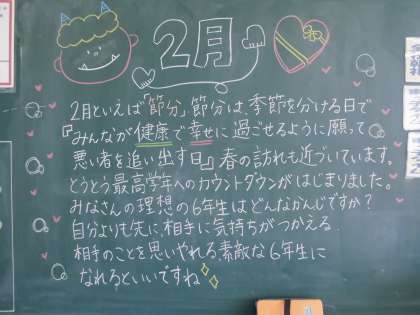 2月
2月といえば節分。節分は、季節を分ける日で
『みんなが健康で幸せに過ごせるように願って
悪い者を追い出す日』。春の訪れも近づいています。
とうとう最高学年へのカウントダウンがはじまりました。
みなさんの理想の6年生はどんなかんじですか?
自分よりも先に、相手に気持ちがつかえる
相手のことを思いやれる素敵な6年生に
なれるといいですね